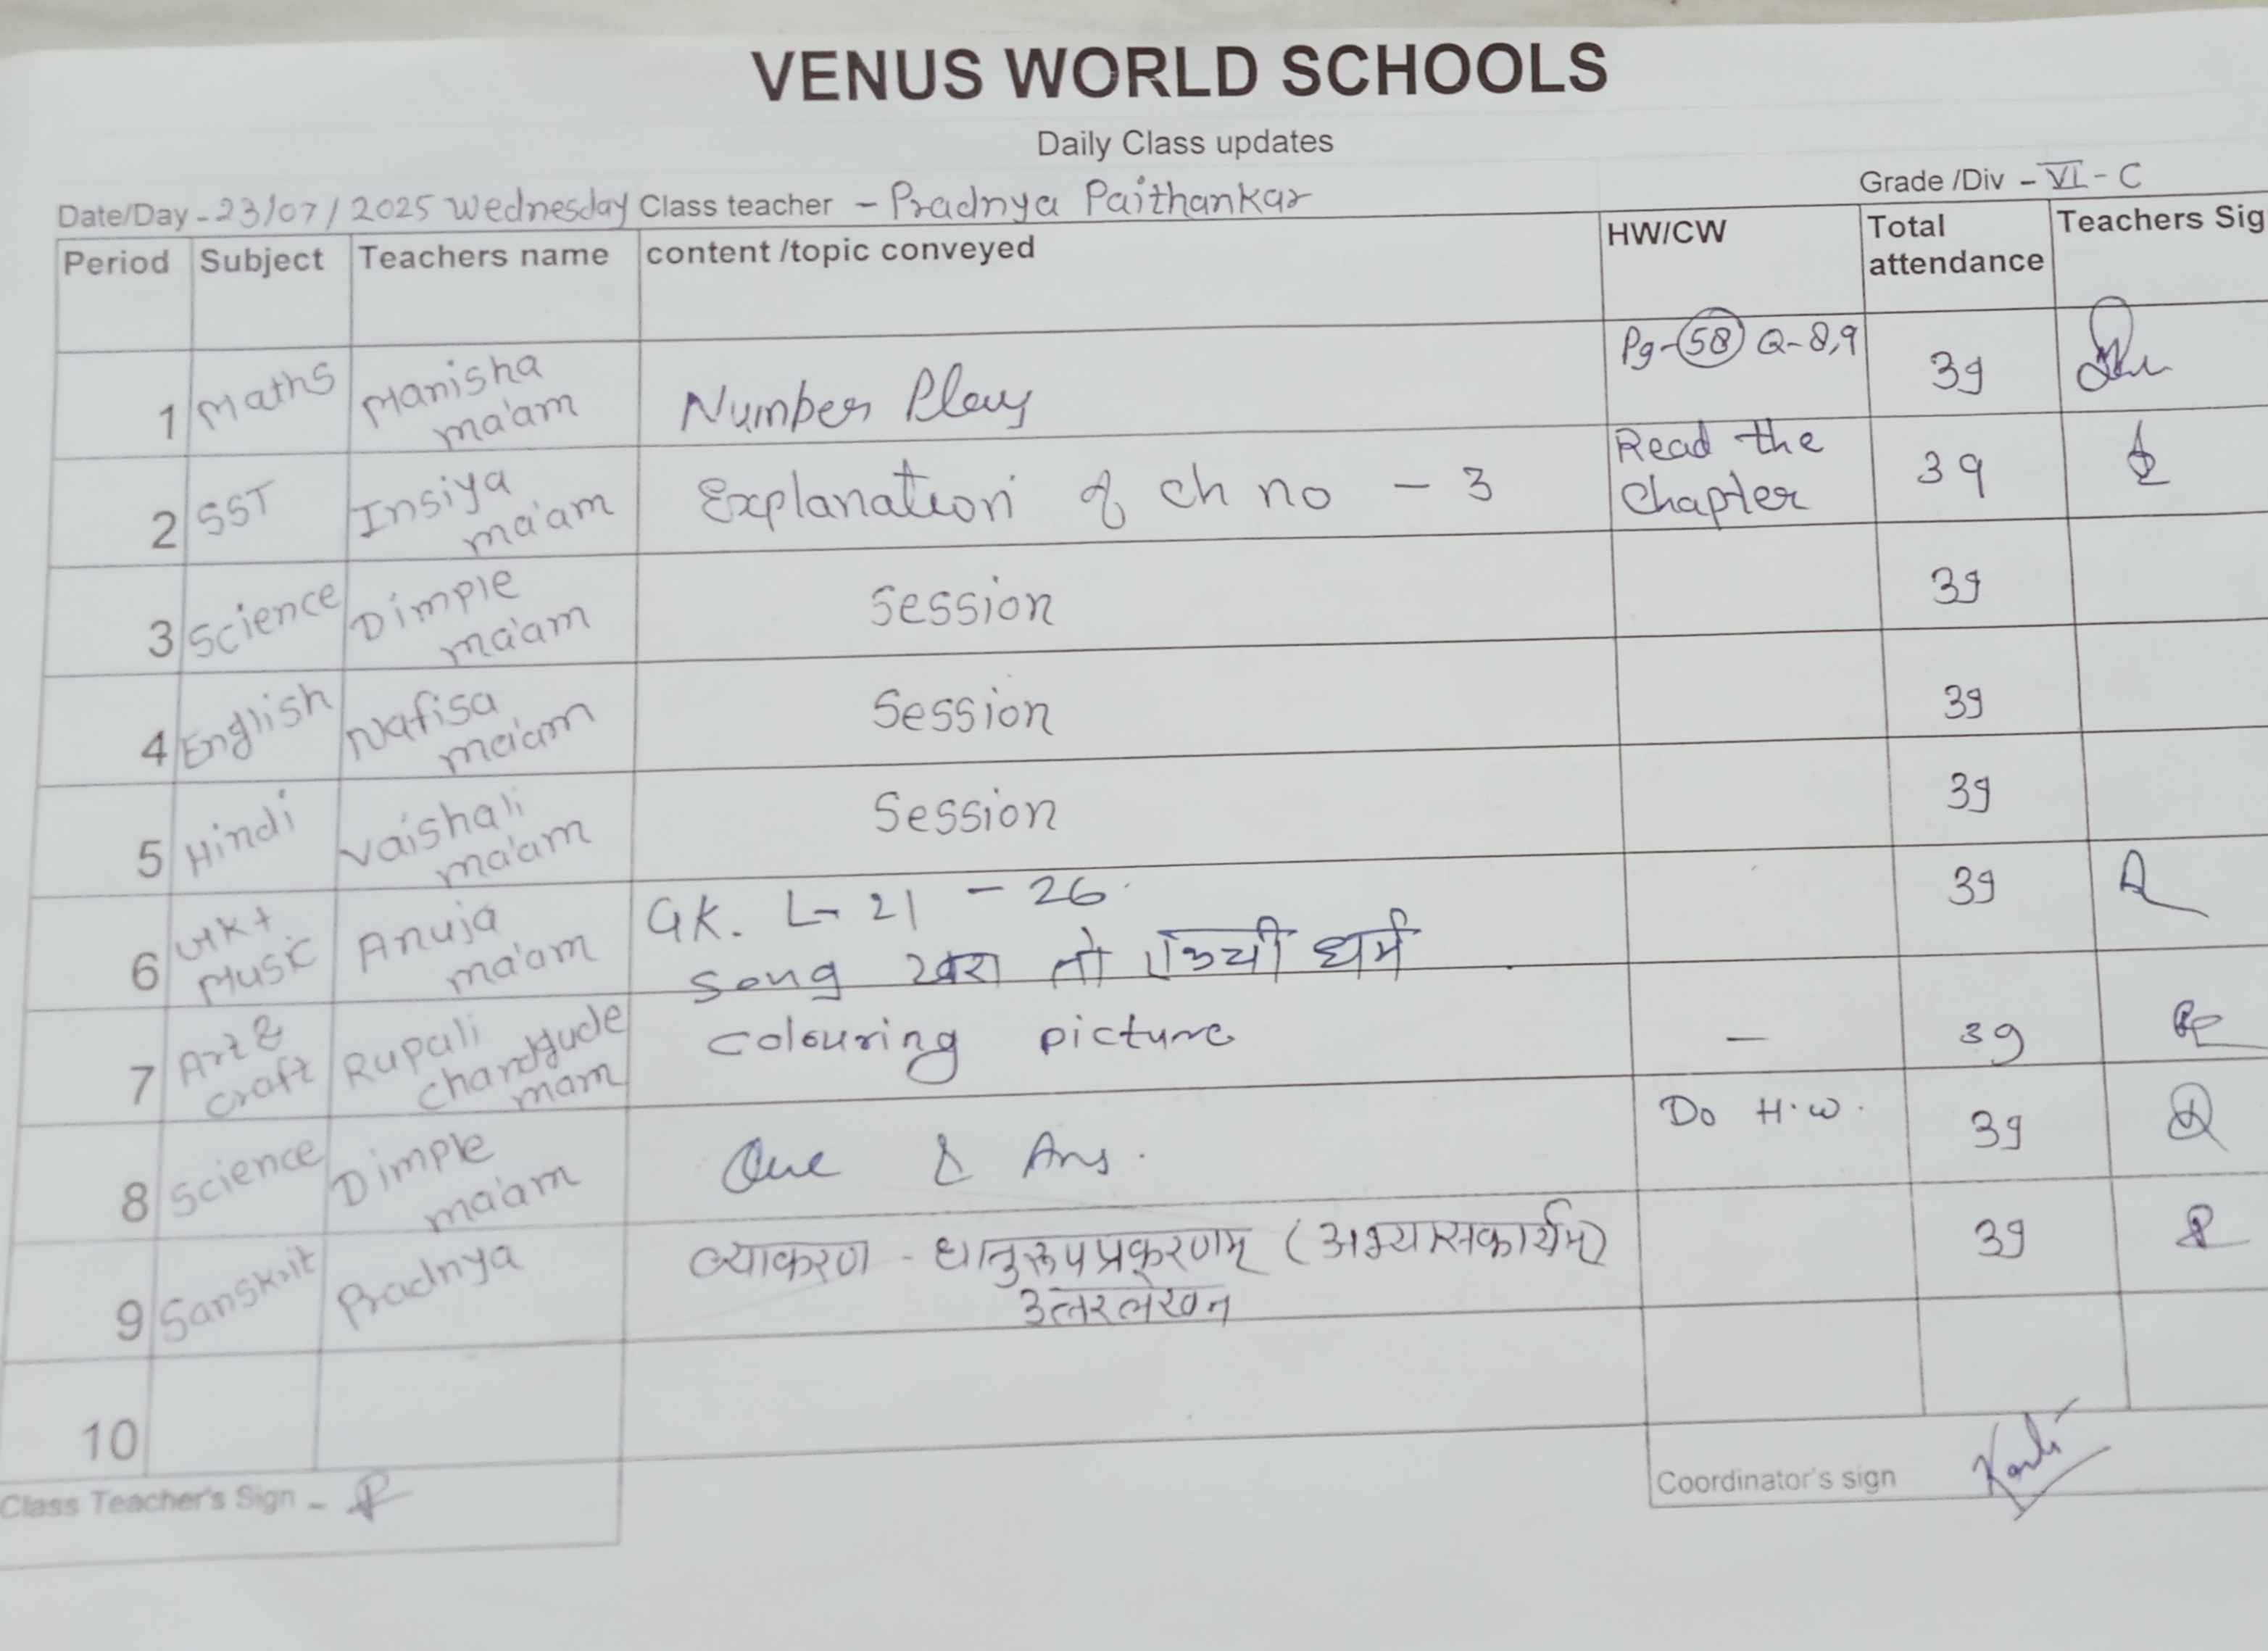 VENUS WORLD SCHOOLS
Daily Class updates
Grade /Div - VI - C
Date/Day - 23/07/2025 Wednesday Class teacher - Pradnya Paithankar
Period Subject Teachers name content /topic conveyed HW/CW Total attendance Teachers Sig
1 Maths Manisha ma'am Number Play Pg-58 Q-8,9 39
2 SST Insiya ma'am Explanation of ch no - 3 Read the Chapter 39
3 Science Dimple ma'am Session 39
4 English Nafisa ma'am Session 39
5 Hindi Vaishali ma'am Session 39
6 Music Anuja ma'am GK. L-21 - 26. 39
song खरा तो धर्म
7 Art & craft Rupali chandgude mam colouring picture - 39
8 Science Dimple ma'am Que & Ans. Do H.W. 39
9 Sanskrit Pradnya व्याकरण - धातुरूपप्रकरणम् (अभ्यासकार्यम्) 39
उत्तरलेखन
10
Class Teacher's Sign -
Coordinator's sign